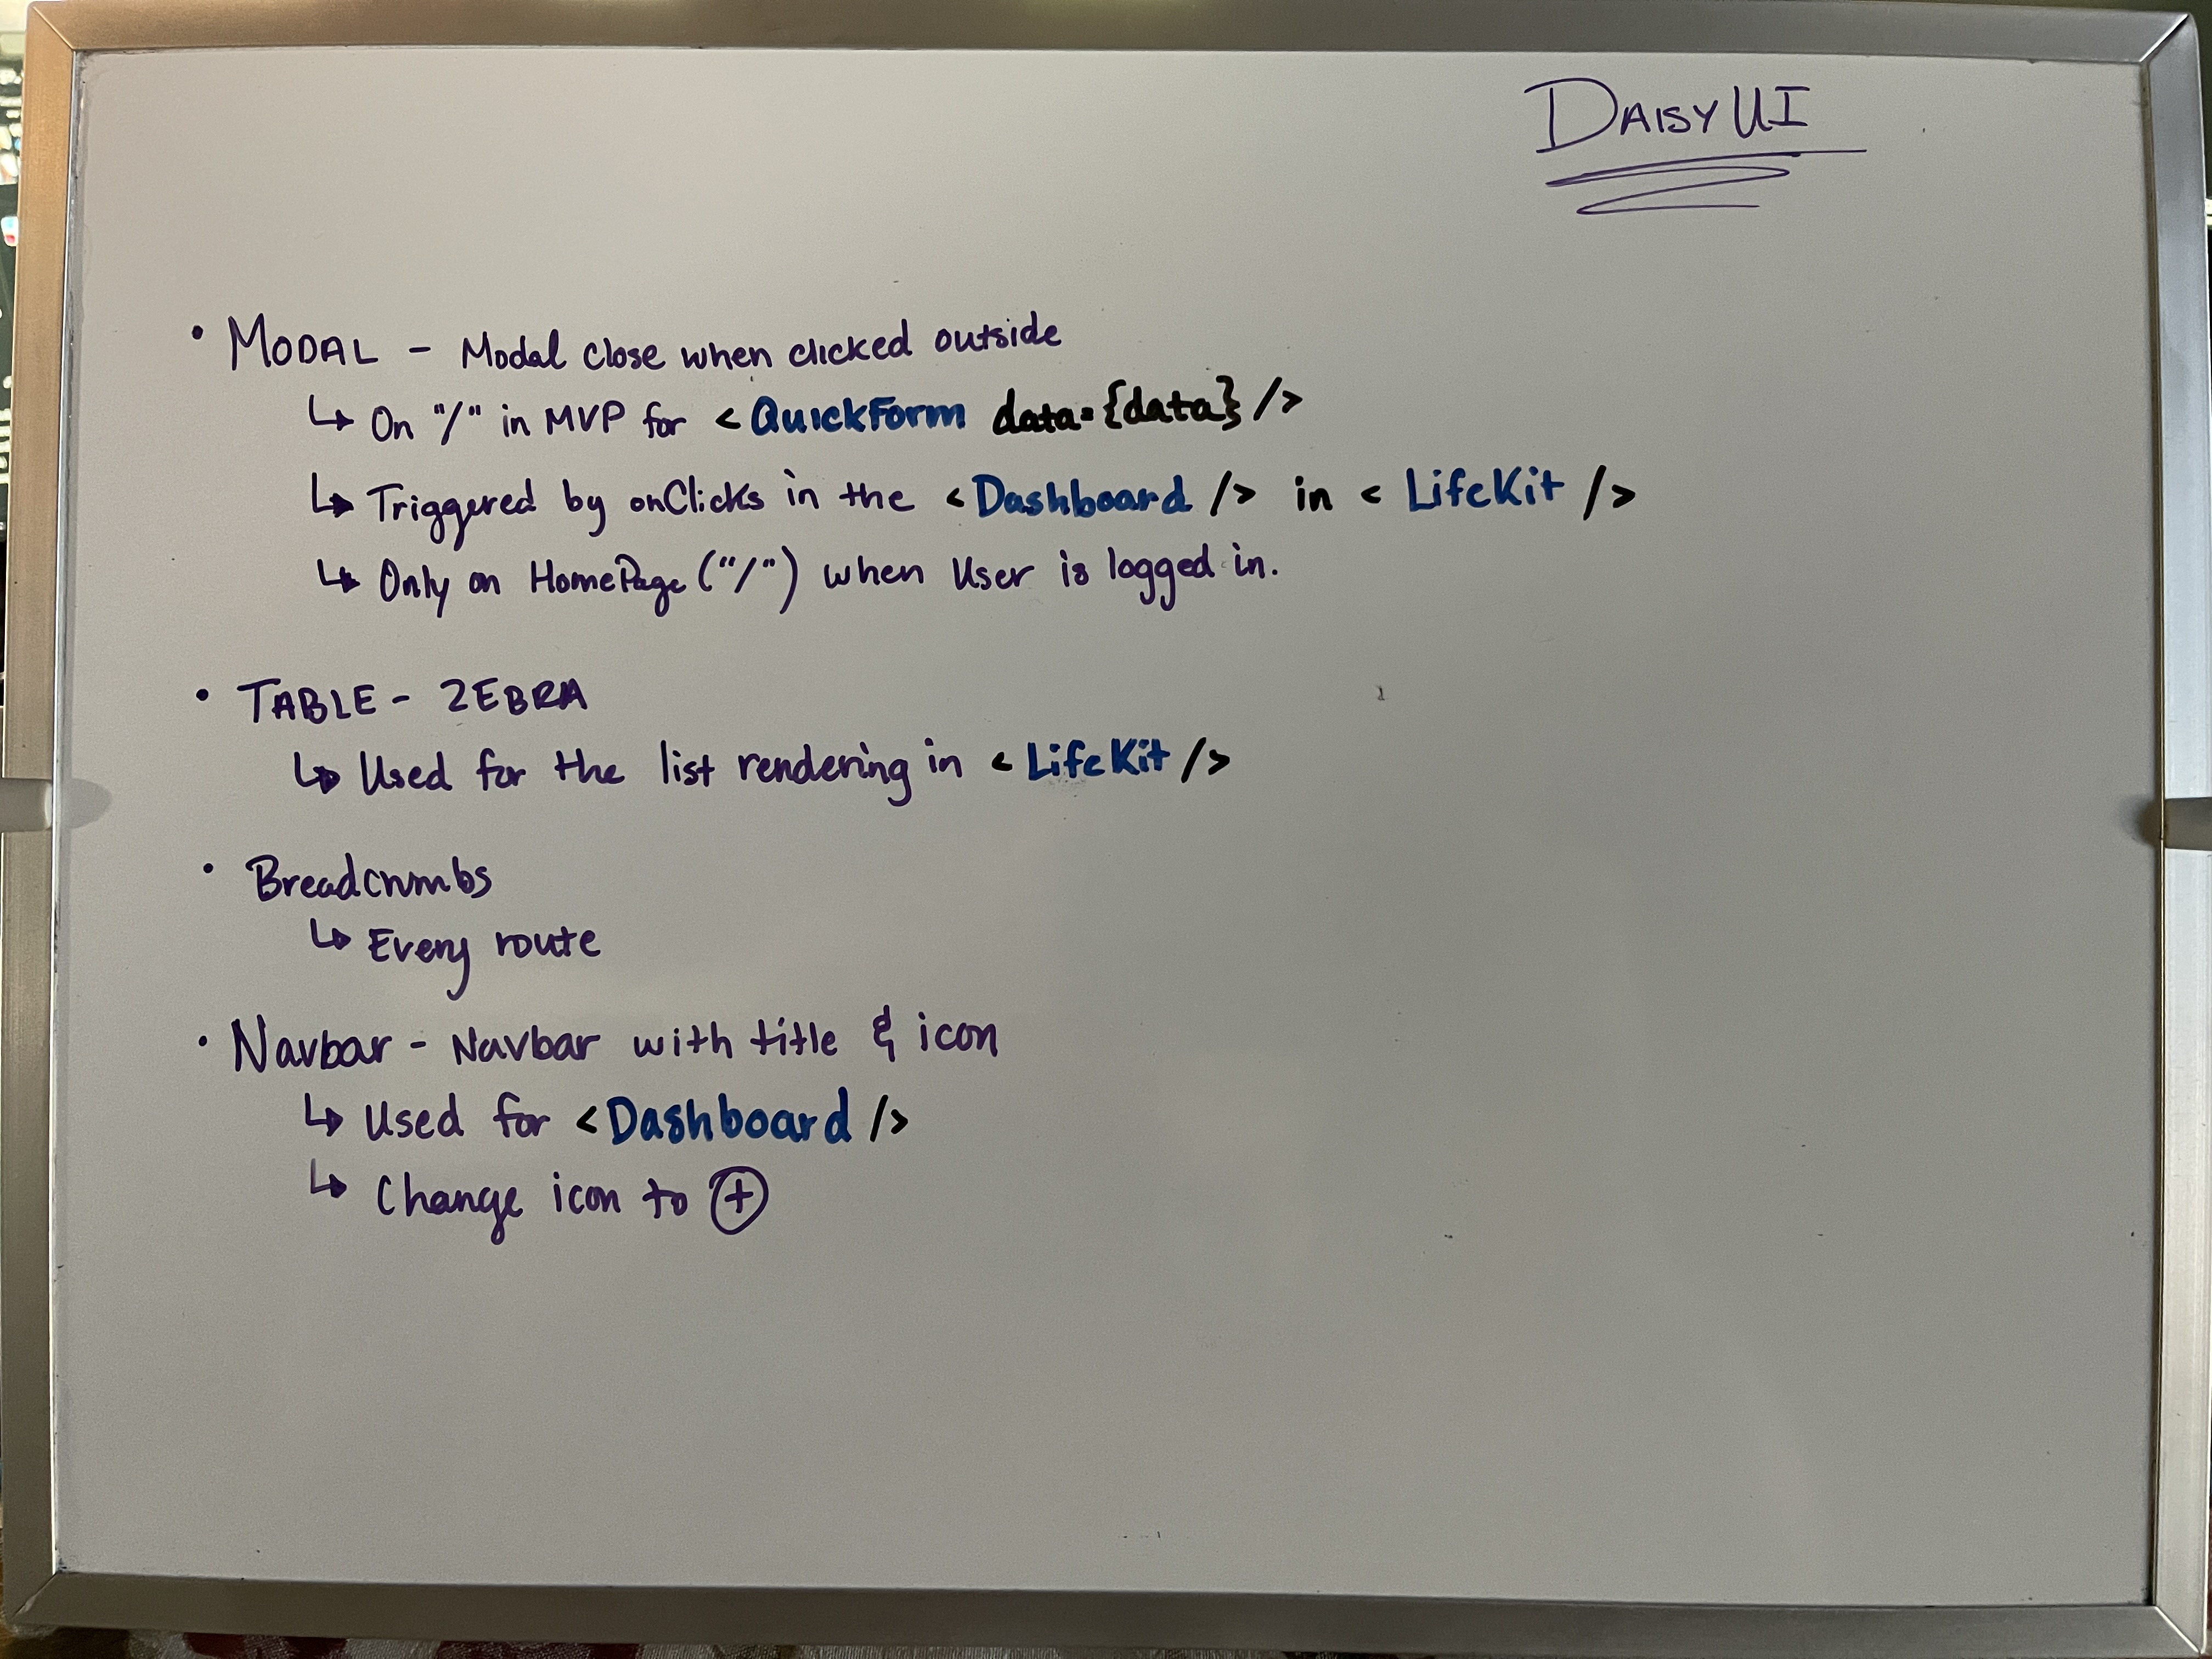 DAISY UI
• MODAL - Modal close when clicked outside
↳ On "/" in MVP for <QuickForm data={data} />
↳ Triggered by onClicks in the <Dashboard /> in <LifeKit />
↳ Only on HomePage ("/") when User is logged in.
• TABLE - ZEBRA
↳ Used for the list rendering in <LifeKit />
• Breadcrumbs
↳ Every route
• Navbar - Navbar with title & icon
↳ Used for <Dashboard />
↳ Change icon to ⊕